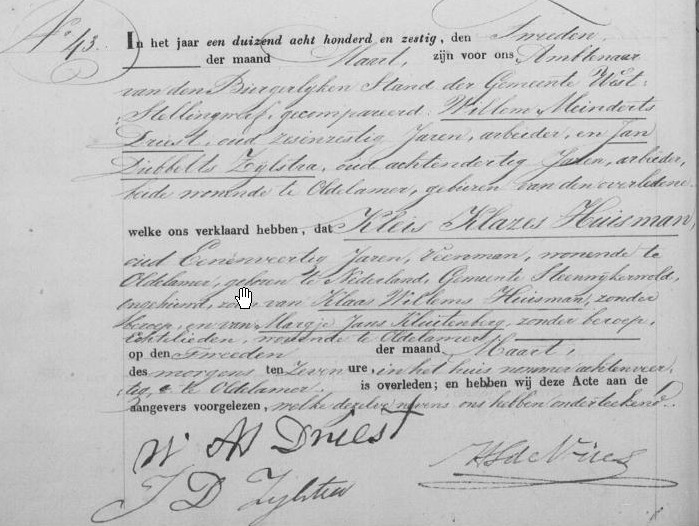 No 43.
In het jaar een duizend acht honderd en zestig, den Tweeden
der maand Maart, zijn voor ons, Ambtenaar
van den Burgerlyken Stand der Gemeente West-
Stellingwerf, gecompareerd: Willem Meinderts
Driest, oud zesenzestig Jaren, arbeider, en Jan
Dubbelts Zylstra, oud achtendertig Jaren, arbeider,
beide wonende te Oldelamer, geburen van den overledene
welke ons verklaard hebben, dat Kleis Klazes Huisman,
oud Eenenveertig Jaren, Veenman, wonende te
Oldelamer, geboren te Nederland, Gemeente Steenwykerwold,
ongehuwd, zoon van Klaas Willems Huisman, zonder
beroep, en van Margje Jans Kluitenberg, zonder beroep,
Echtelieden, wonende te Oldelamer,
op den Tweeden der maand Maart,
des morgens ten Zeven ure, in het huis nummer achtenveer
tig, te Oldelamer is overleden; en hebben wij deze Acte aan de
aangevers voorgelezen, welke dezelve nevens ons hebben onderteekend.
W M Driest
J D Zylstra